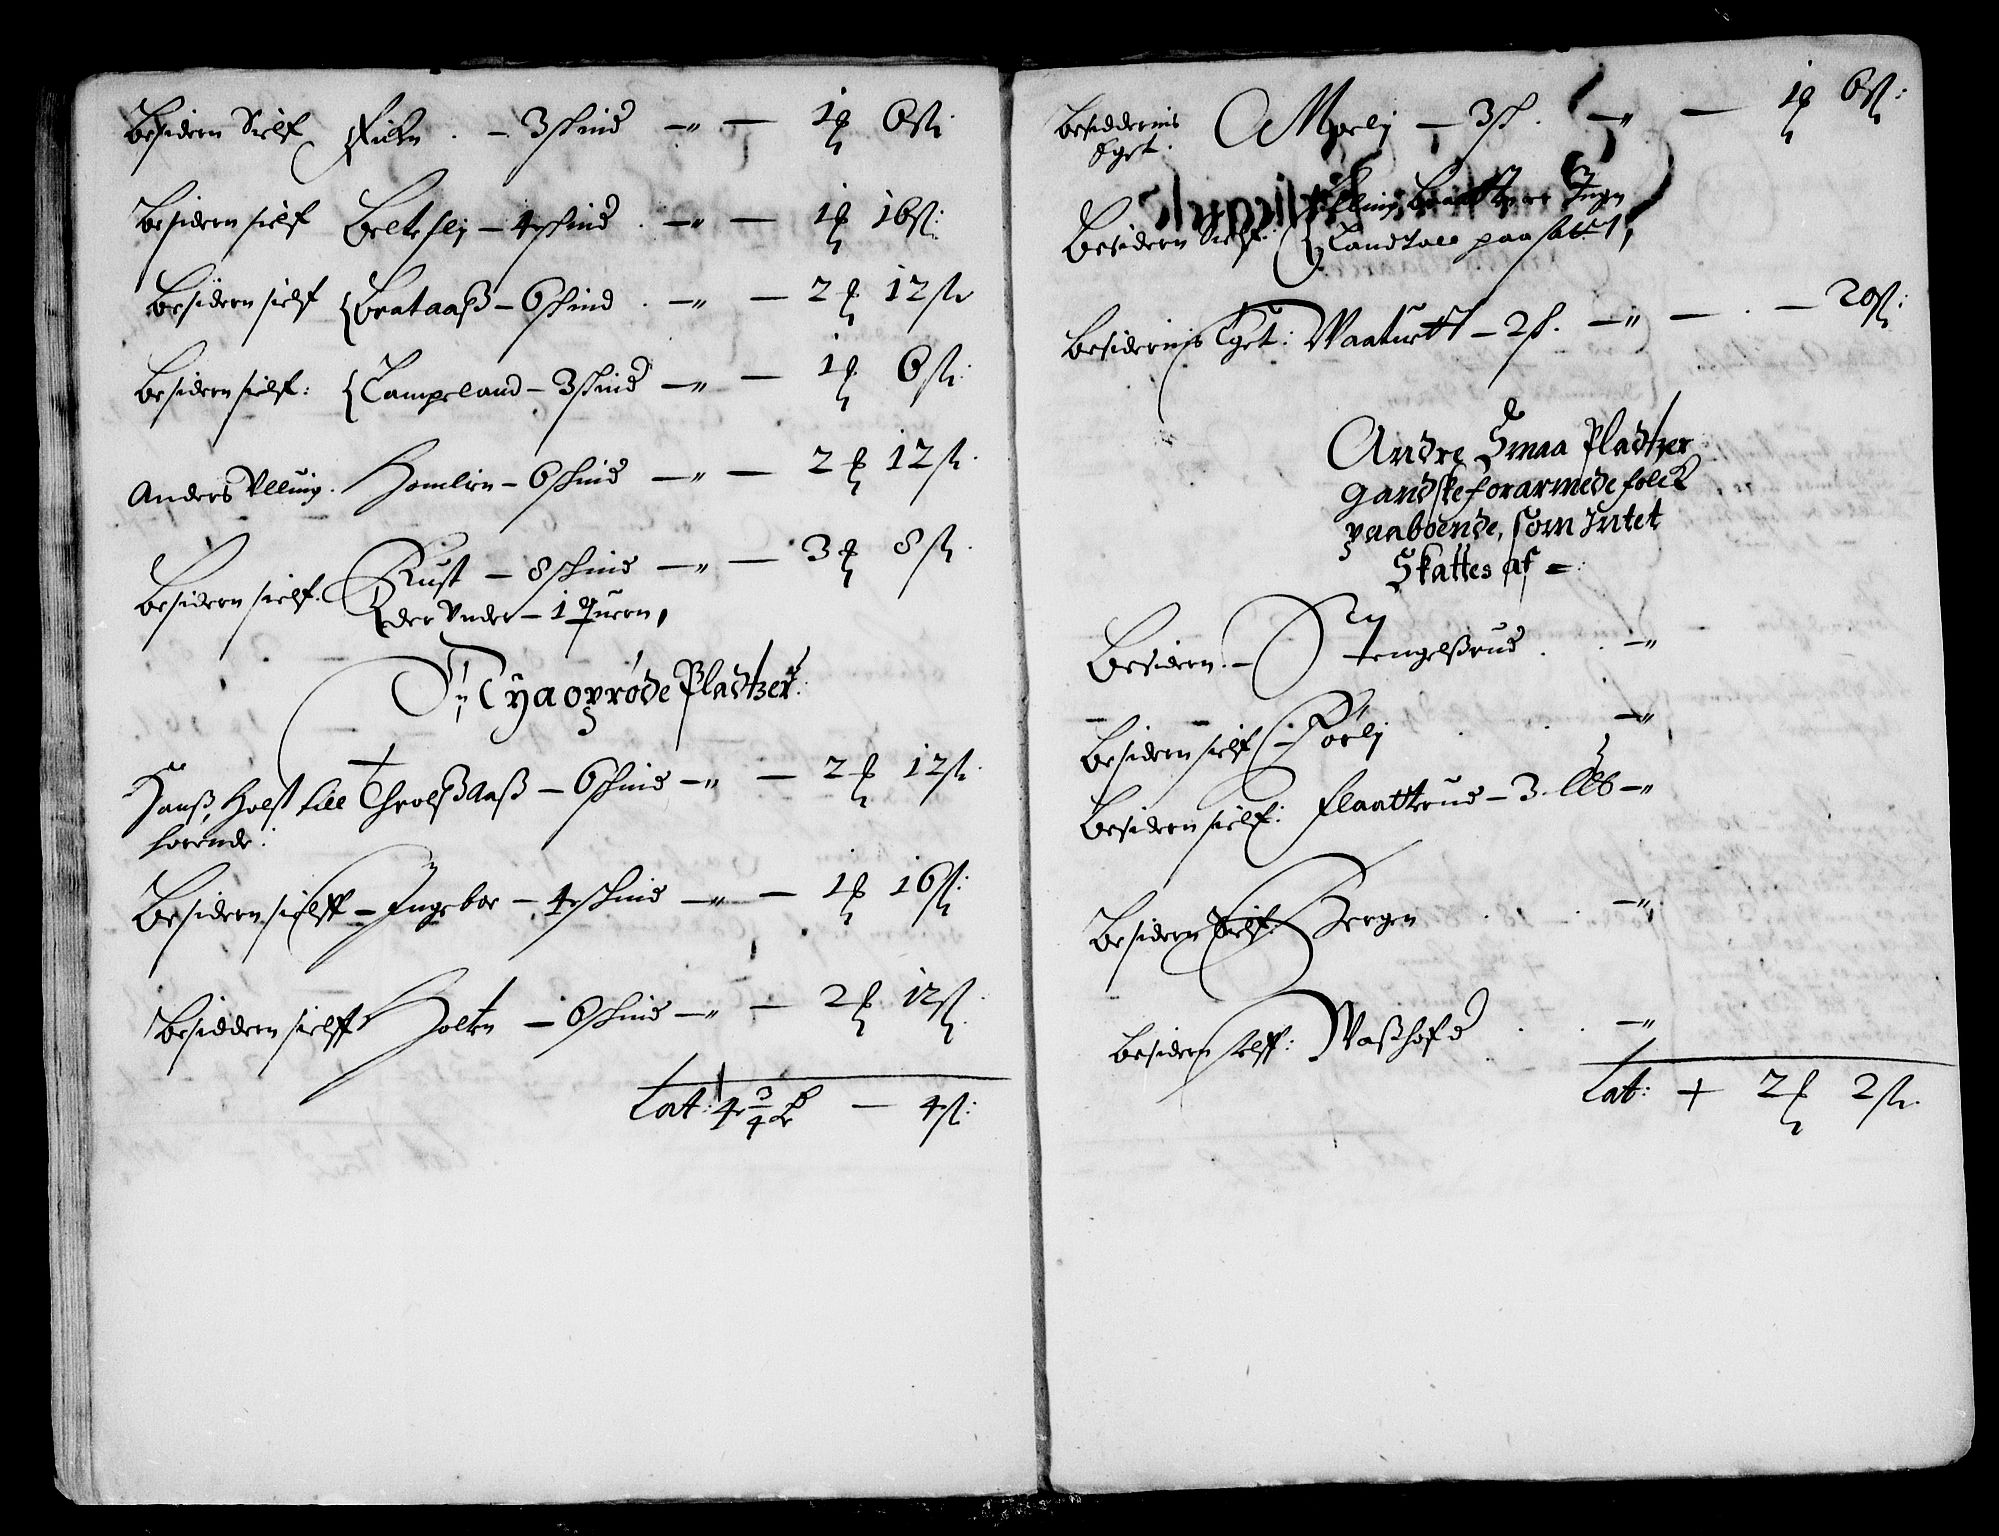 Besidern Sielf Ficken - 3 skind -"- 1 ß:
Besidern sielf Beltesli - 4 skind -"- 1 16 ß:
Besidern sielf Brataaß - 6 skind -"- 2 12 ß
Besidern sielf: Campeland - 3 skind -"- 1 6 ß:
Anders Ulling. Homlien - 6 skind -"- 2 12 ß.
Besidern sielf. Rust - 8 skind -"- 3 8 ß.
der Under - 1 Quern,
Nya oprøde Pladtzer.
Hanß Holst till Throlßaaß - 6 skind -"- 2 12 ß
hørende:
Besidern sielff - Ingeboe - 4 skind -"- 1 16 ß:
Besiddern sielff Holten - 6 skind -"- 2 12 ß.
Lat: 4 3/4 - 4 ß:
Besiddernis Moelj - 3 s. -"- 1 6 ß:
Eget.
Ingen
Besidern Sielf. Landtole paa satt,
Besidernis Eget: Waaturtt - 2 s. -"- . - 20 ß:
Andre Smaa Pladtzer
gandske forarmede folck
paaboende, som Intet
Skattes af =
Besidern. - Stengelßrud . . -"
Besidern sielf - Børlj . . -"
Besidern sielf: Flaattrud - 3. Lb -"
Besidern Sielf: Bergen . . -"
Besidern selff: Waßhofd . . -"
Lat: + 2 2 ß.